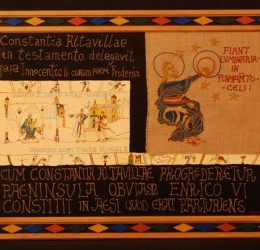 Constantia Altavillae
in testamento delegavit
papa Innocentio III curam pueri Friderici
FIANT
LUMINARIA
IN
FIRMAMENTO
CELI
CUM CONSTANTIA ALTAVILLAE PROGREDERETUR
PAENINSULA OBVIAM ENRICO VI
CONSTITIT IN AESI QUOD ERAT PARTURIENS